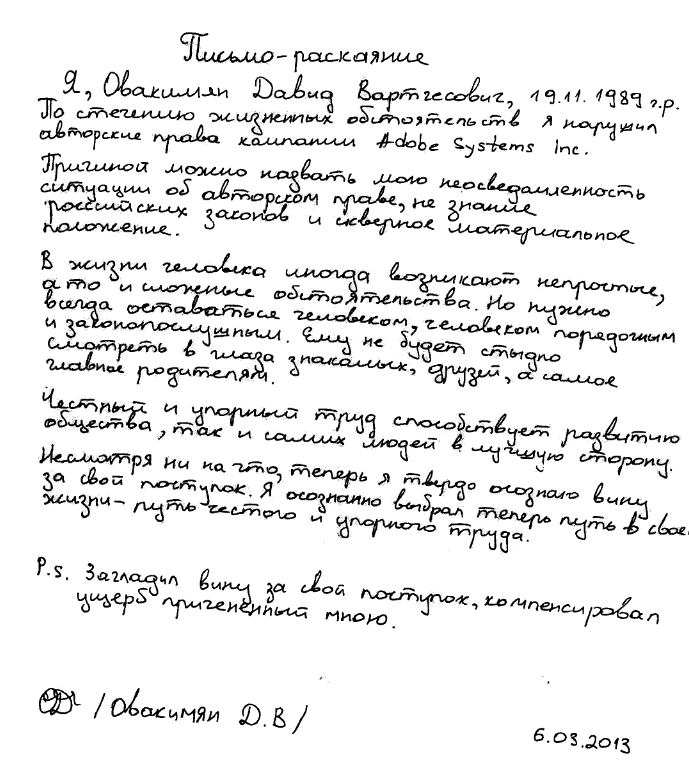 Письмо-раскаяние
Я, Овакимян Давид Вартгесович, 19.11.1989 г.р.
По стечению жизненных обстоятельств я нарушил
авторские права кампании Adobe Systems Inc.
Причиной можно назвать мою неосведамленность
ситуации об авторском праве, не знание
российских законов и скверное материальное
положение.
В жизни человека иногда возникают непростые,
а то и сложные обстоятельства. Но нужно
всегда оставаться человеком, человеком порядочным
и законопослушным. Ему не будет стыдно
смотреть в глаза знакомых, друзей, а самое
главное родителям.
Честный и упорный труд способствует развитию
общества, так и самих людей в лучшую сторону.
Несмотря ни на что, теперь я твердо осознаю вину
за свой поступок. Я осознанно выбрал теперь путь в свое
жизни - путь честого и упорного труда.
P.s. Загладил вину за свой поступок, компенсировал
ущерб причененный мною.
/Овакимян Д.В/
6.03.2013